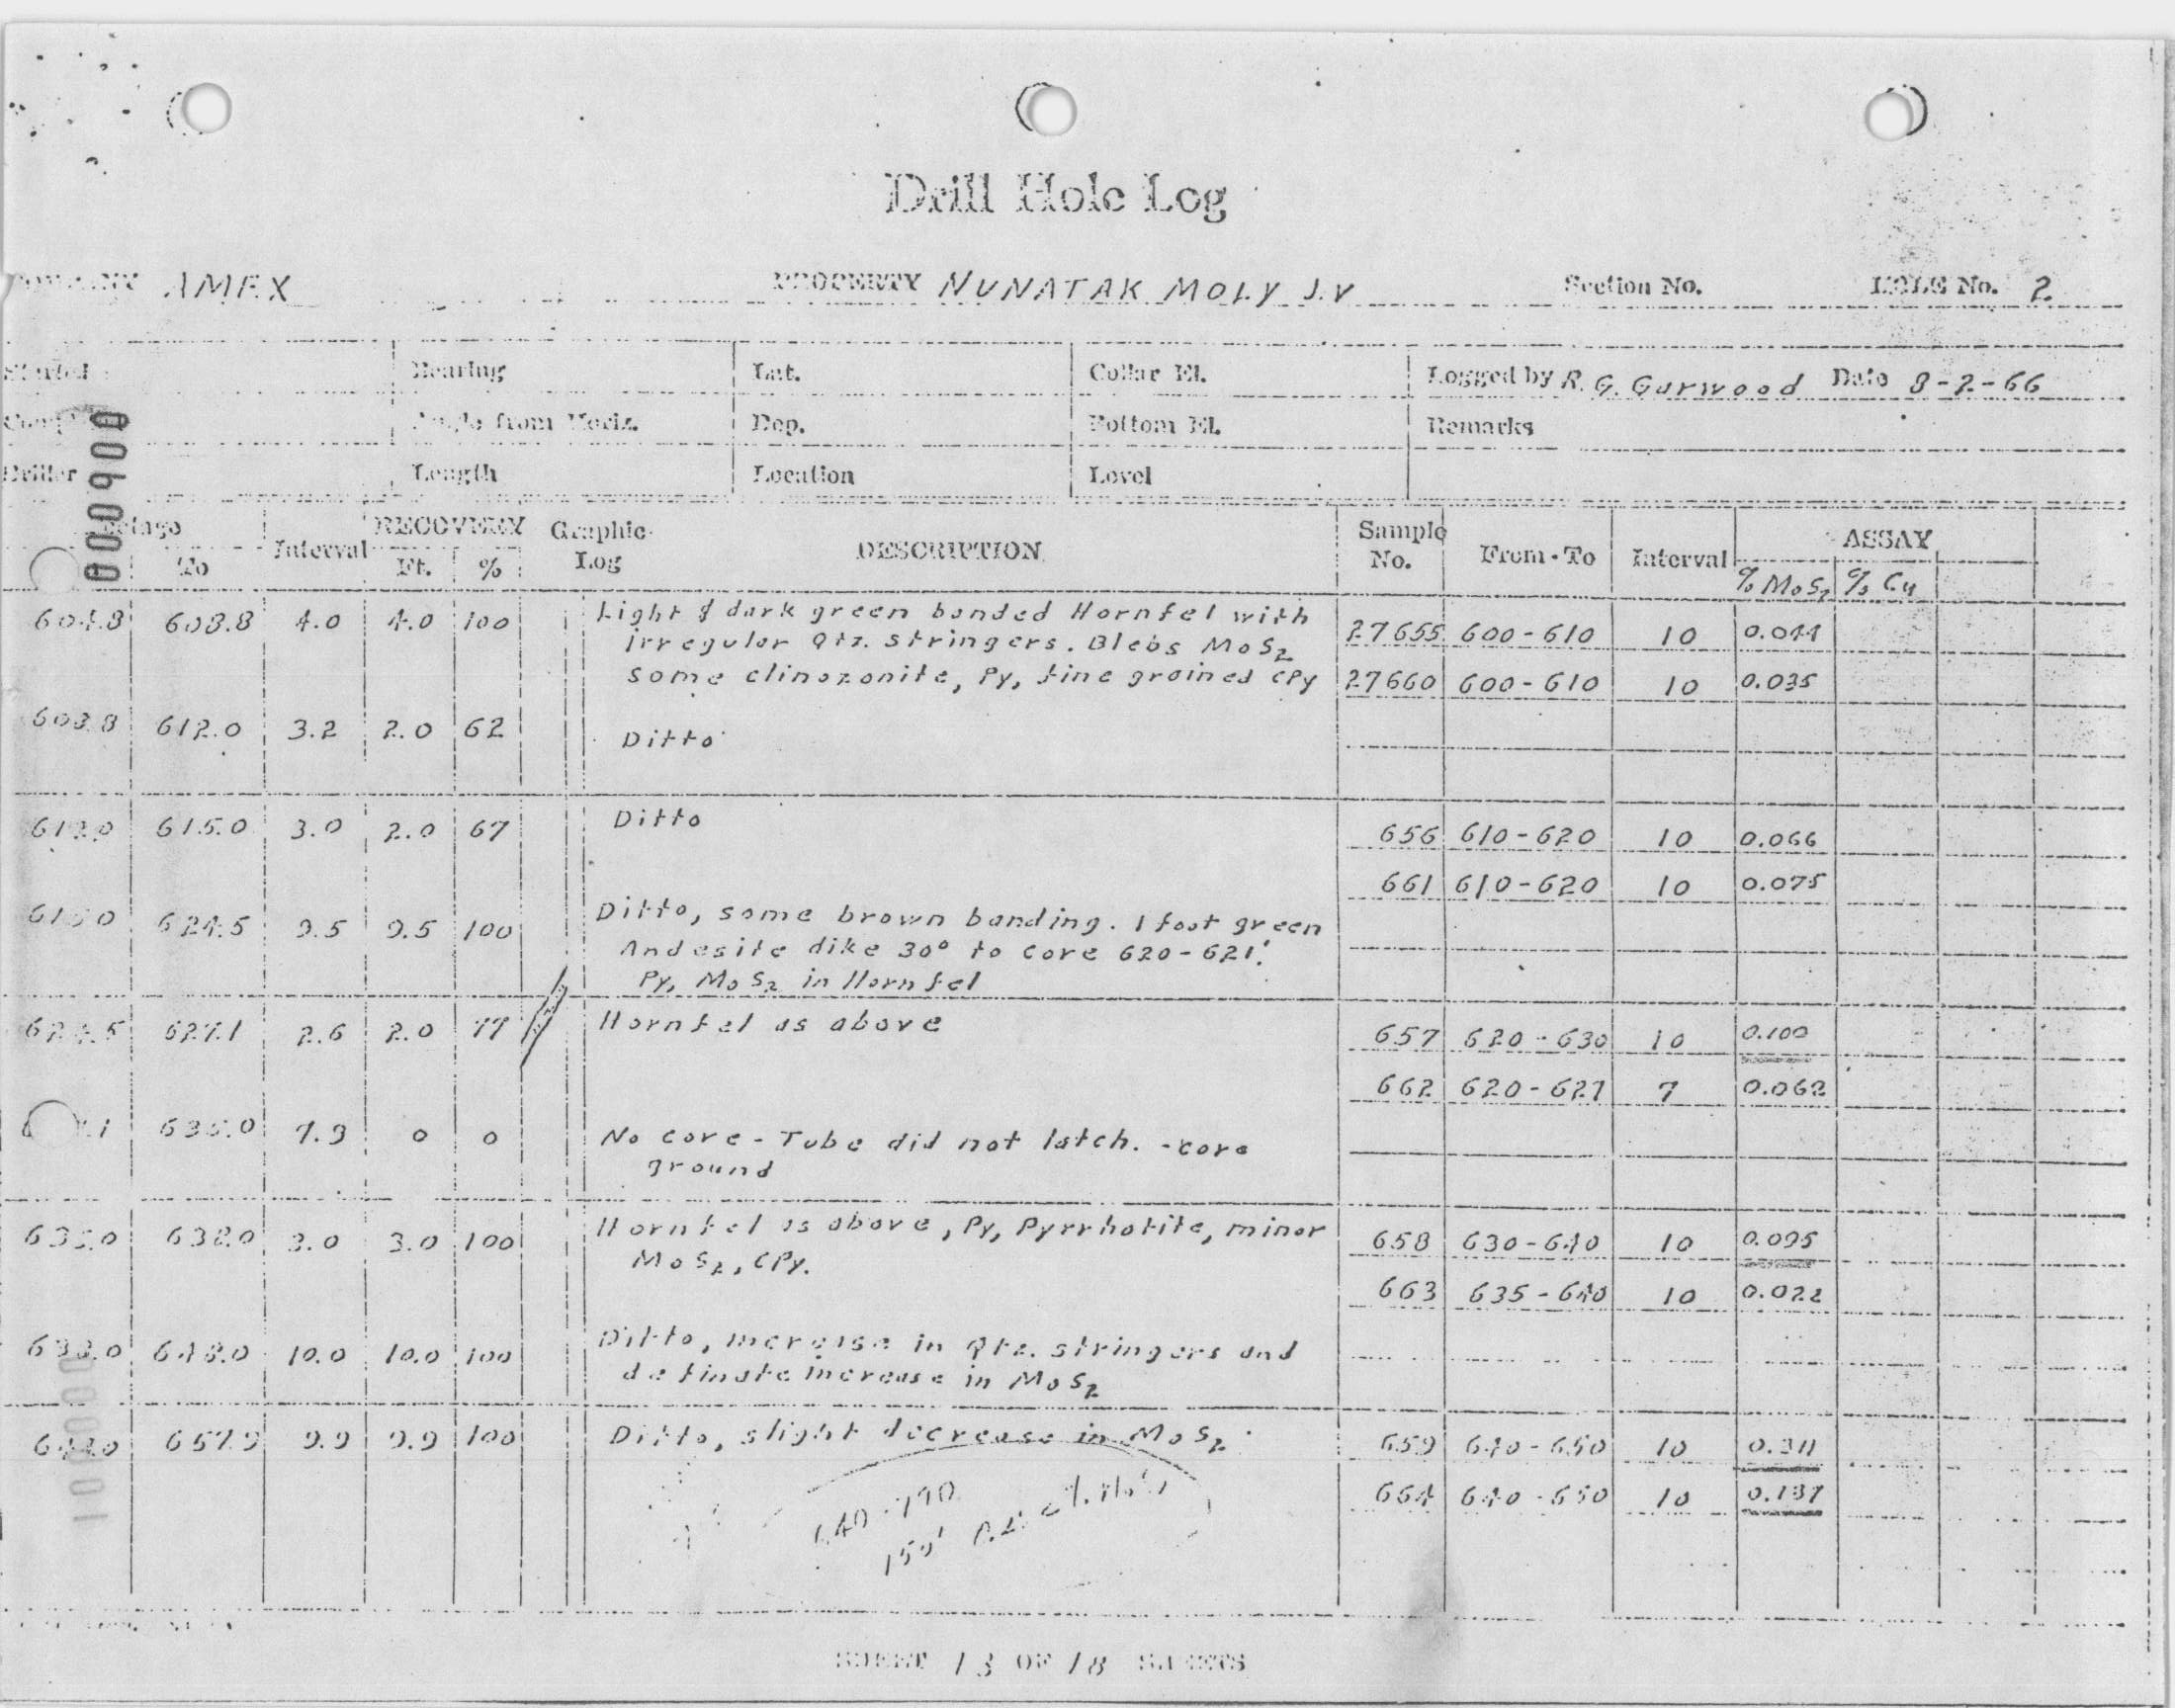 Drill Hole Log
AMEX PROPERTY NUNATAK MOLY J.V Section No. HOLE No. 2
Started Bearing Lat. Collar El. Logged by R. G. Garwood Date 8-2-66
Angle from Horiz. Dep. Bottom El. Remarks
Driller Length Location Level
RECOVERY Graphic Sample ASSAY
To Interval Ft. % Log DESCRIPTION No. From-To Interval
% MoS2 % Cu
604.8 608.8 4.0 4.0 100 Light & dark green banded Hornfel with
irregular Qtz. stringers. Blebs MoS2 27655 600-610 10 0.044
some clinozonite, Py, fine grained CPy 27660 600-610 10 0.035
608.8 612.0 3.2 2.0 62 Ditto
612.0 615.0 3.0 2.0 67 Ditto 656 610-620 10 0.066
661 610-620 10 0.075
615.0 624.5 9.5 9.5 100 Ditto, some brown banding. 1 foot green
Andesite dike 30° to core 620-621'.
Py, MoS2 in Hornfel
624.5 627.1 2.6 2.0 77 Hornfel as above 657 620-630 10 0.100
662 620-627 7 0.062
635.0 7.9 0 0 No core - Tube did not latch. - core
ground
635.0 638.0 3.0 3.0 100 Hornfel as above, Py, Pyrrhotite, minor 658 630-640 10 0.095
MoS2, CPy.
663 635-640 10 0.022
638.0 648.0 10.0 10.0 100 Ditto, increase in Qtz. stringers and
definate increase in MoS2
648.0 657.9 9.9 9.9 100 Ditto, slight decrease in MoS2. 659 640-650 10
664 640-650 10 0.137
640-790
150'
SHEET 13 OF 18 SHEETS